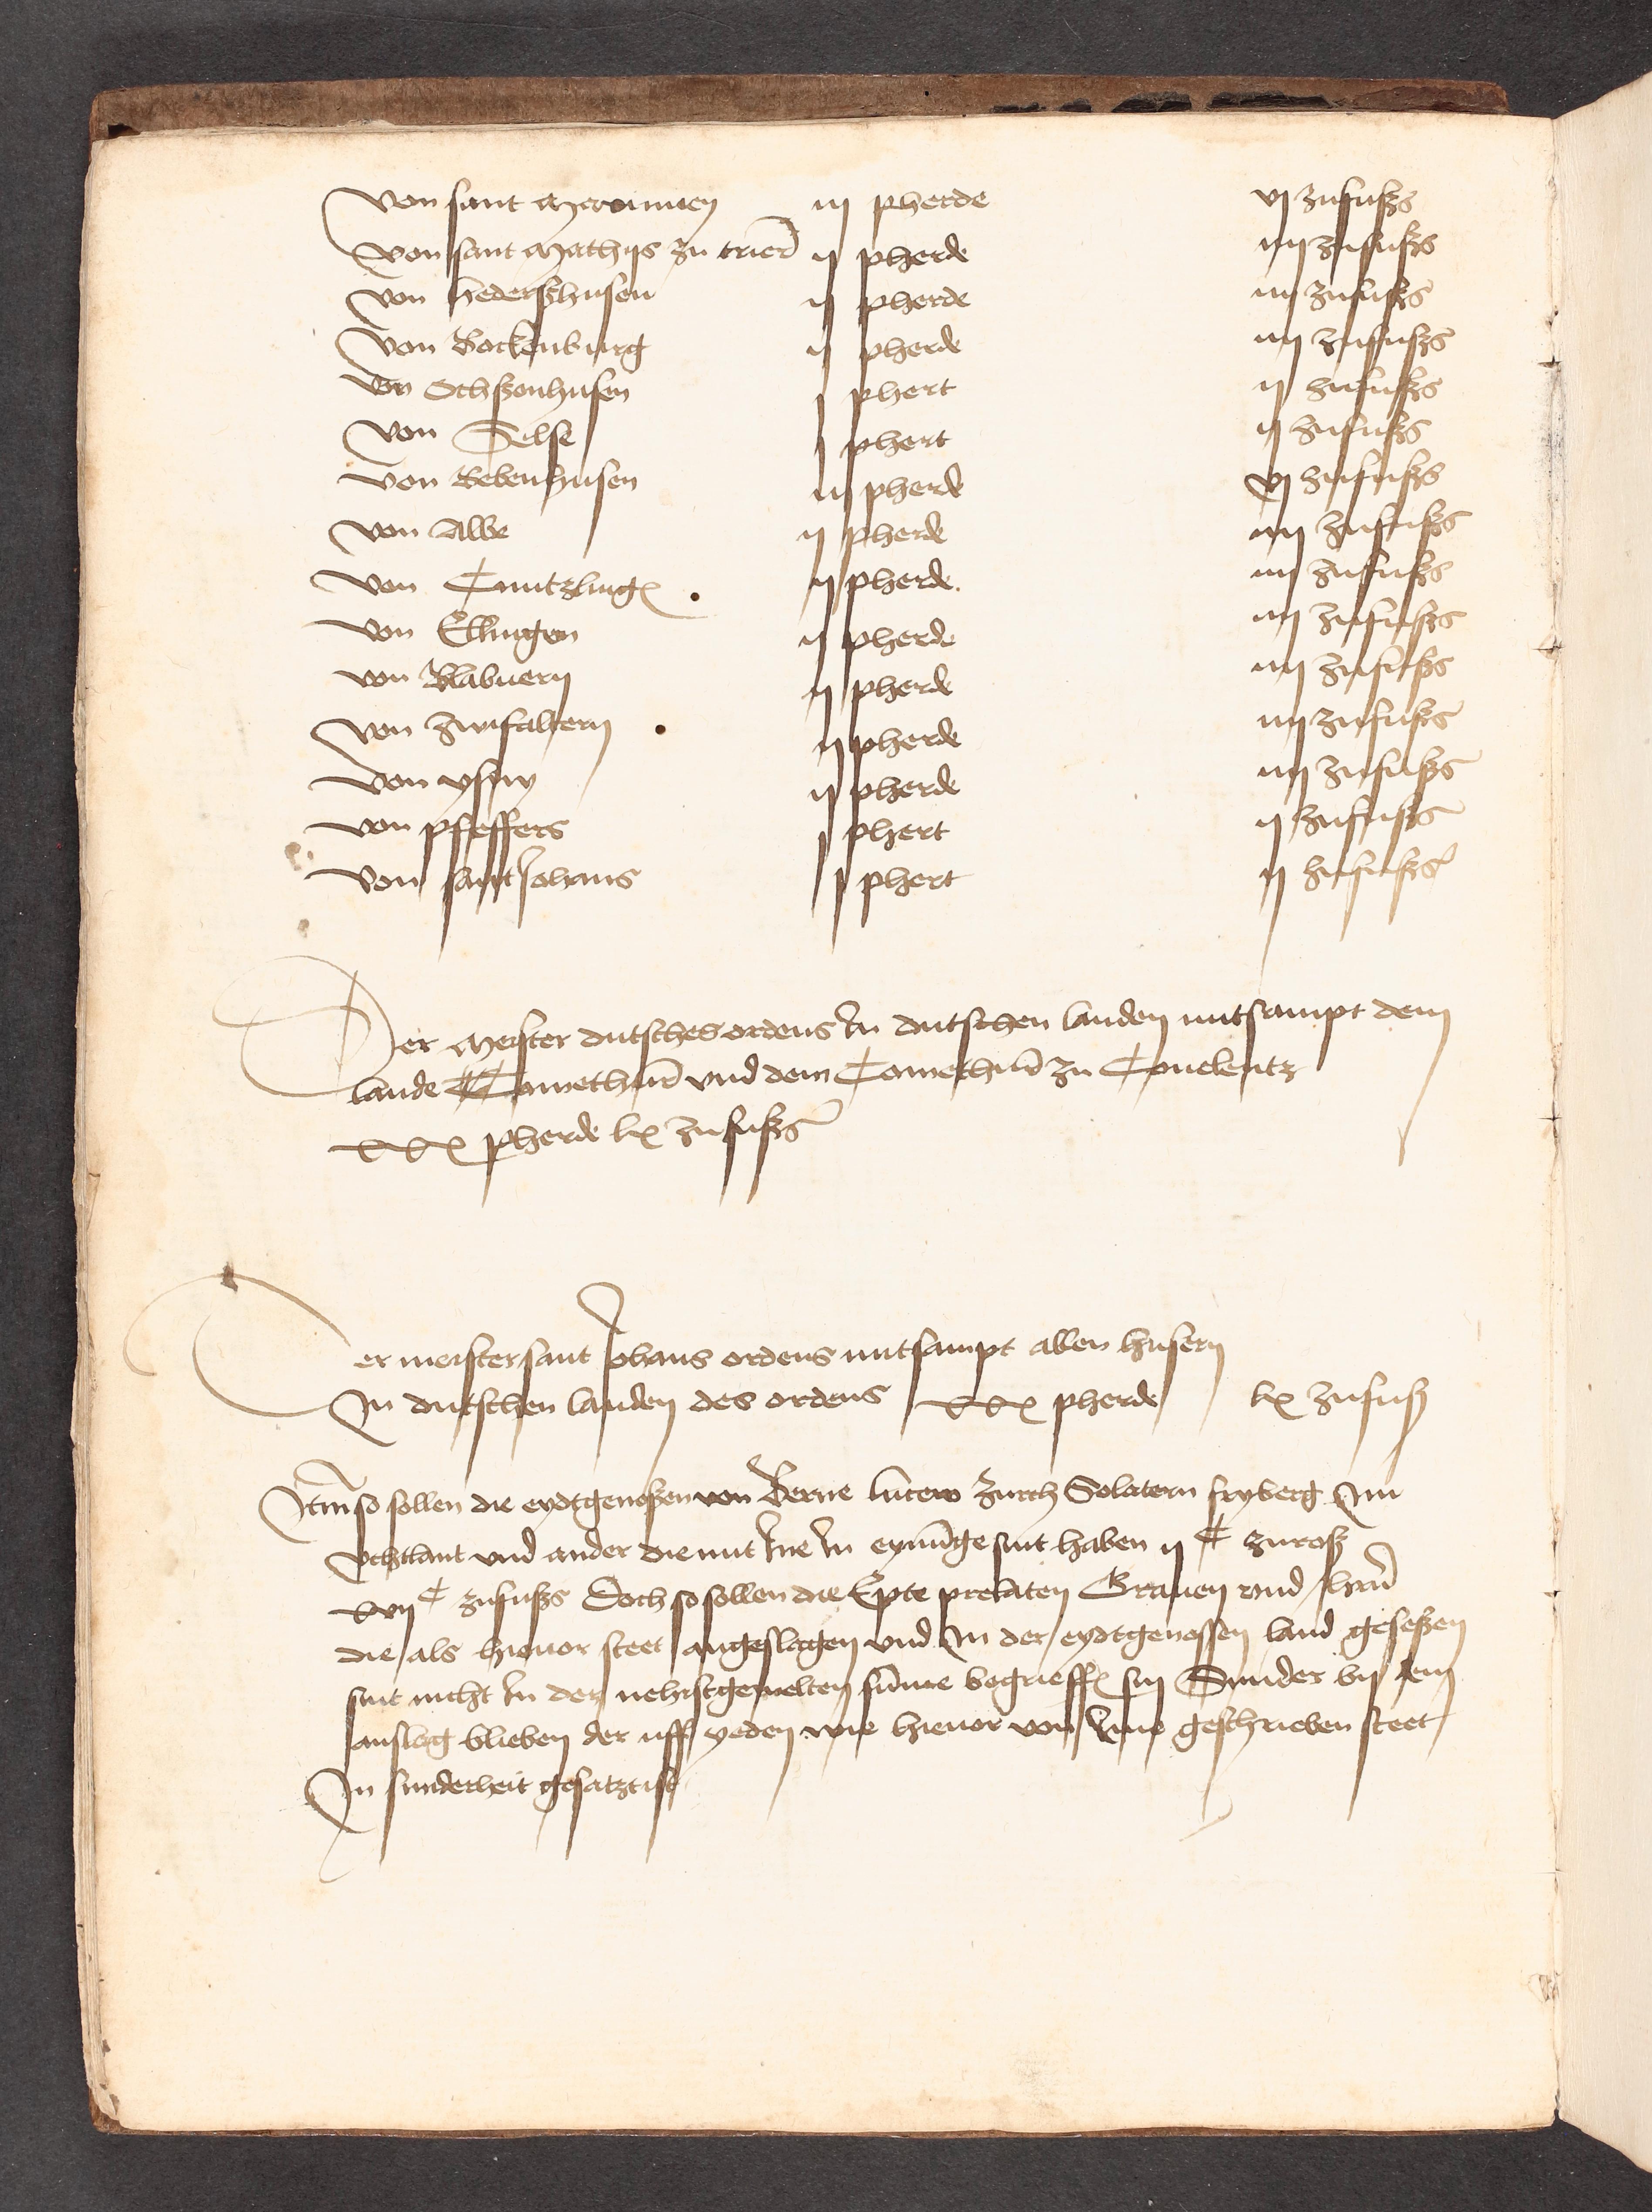 Von sant Meximien iij pherde vj zufuߣs
Von sant Mathijs zu trier ij pherde iiij zufußs
Von Hederßhusen ij pherde iiij zufußs
Von Bockenburg ij pherde iiij zufußs
Von Ochßenhusen j phert ij zufußs
Von Selse j phert ij zufußs
Von Bebenhusen iij pherde vj zufußs
Von Albe ij pherde iiij zufußs
Von ij pherde iiij zufußs
Von Ellingen ij pherde iiij zufußs
Von Blabuern ij pherde iiij zufußs
Von Zwifaltern ij pherde iiij zufußs
Von ysny ij pherde iiij zufußs
Von pfeffers j phert ij zufußs
Von sant Johans j phert ij zufußs
Der meister dutsches ordens In dutschen landen mitsampt dem
lande Comethur vnd dem Comethur zu Couelentz
xxx pherde lx zufußs
Der meister sant Johans ordens mitsampt allen husern
In dutschen landen des ordens xxx pherde lx zufuß
Item so sollen die eydtgenoßen von Berne lucern Zurch Solatern fryberg Im
vchtlant vnd ander die mit Ine In eynunge sint haben ij C zuroß
C zufußs Doch so sollen die Epte prelaten Grauen vnd hern
die als hieuor steet angeslagen vnd In der eydtgenossen land geseßen
sint nicht In der nehstgemelten summe begrieffen sin Sunder by dem
anslag blieben der uff yeden wie hieuor von Ime geschrieben steet
In sunderheit gesatzt ist